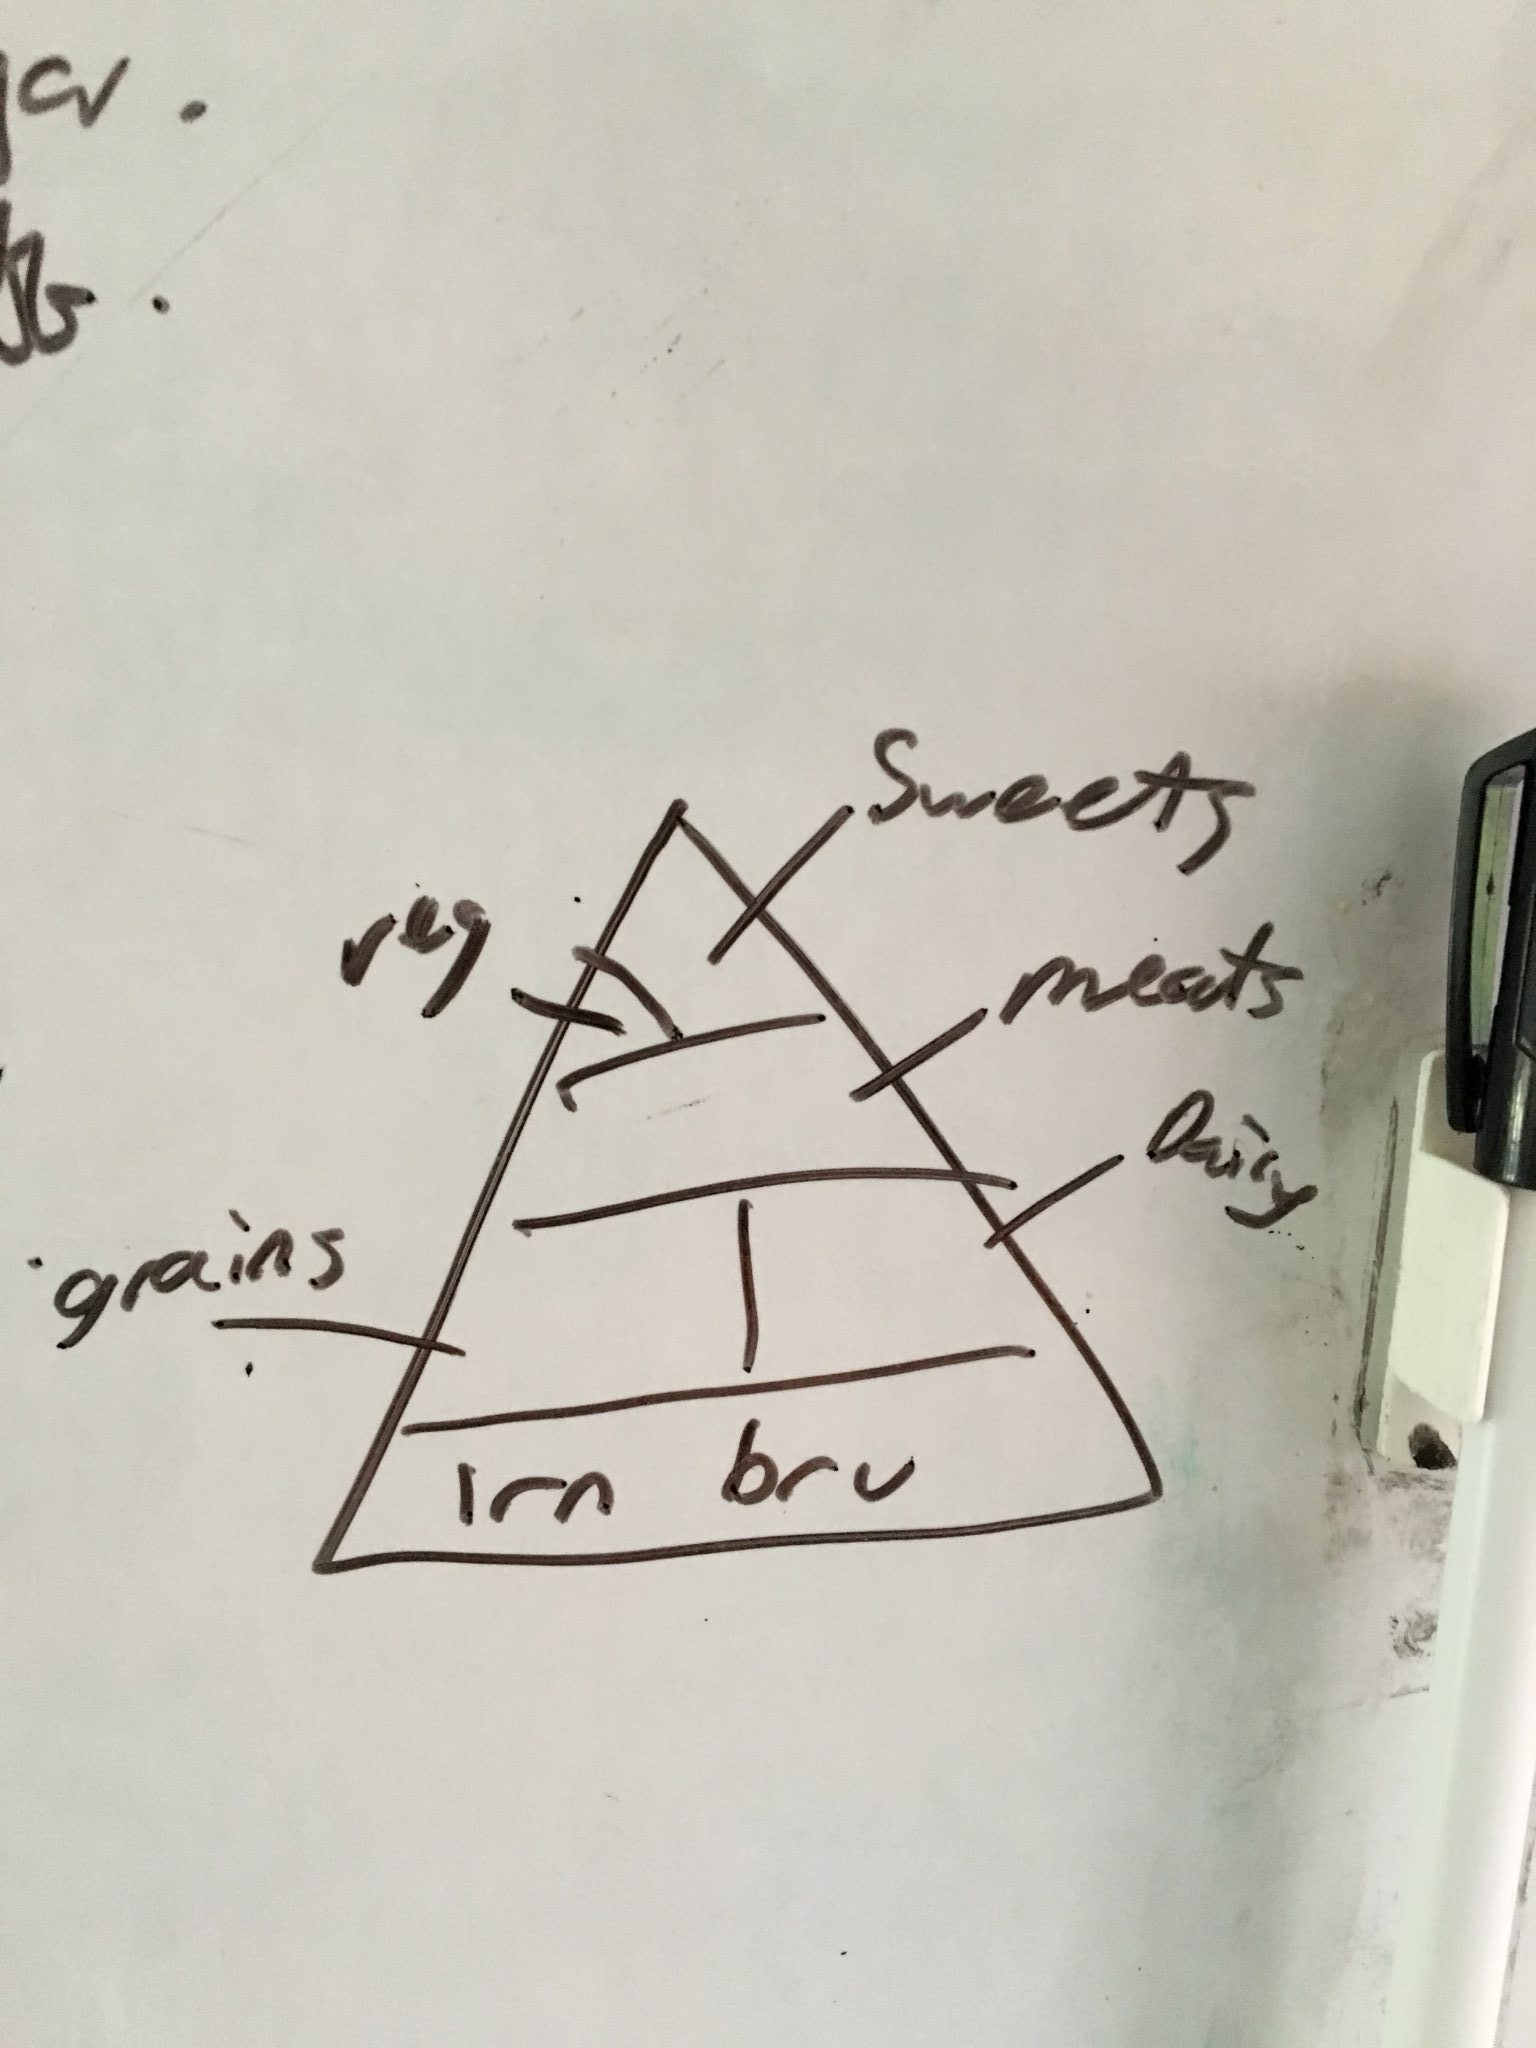 Sweets
veg
meats
Dairy
grains
irn bru